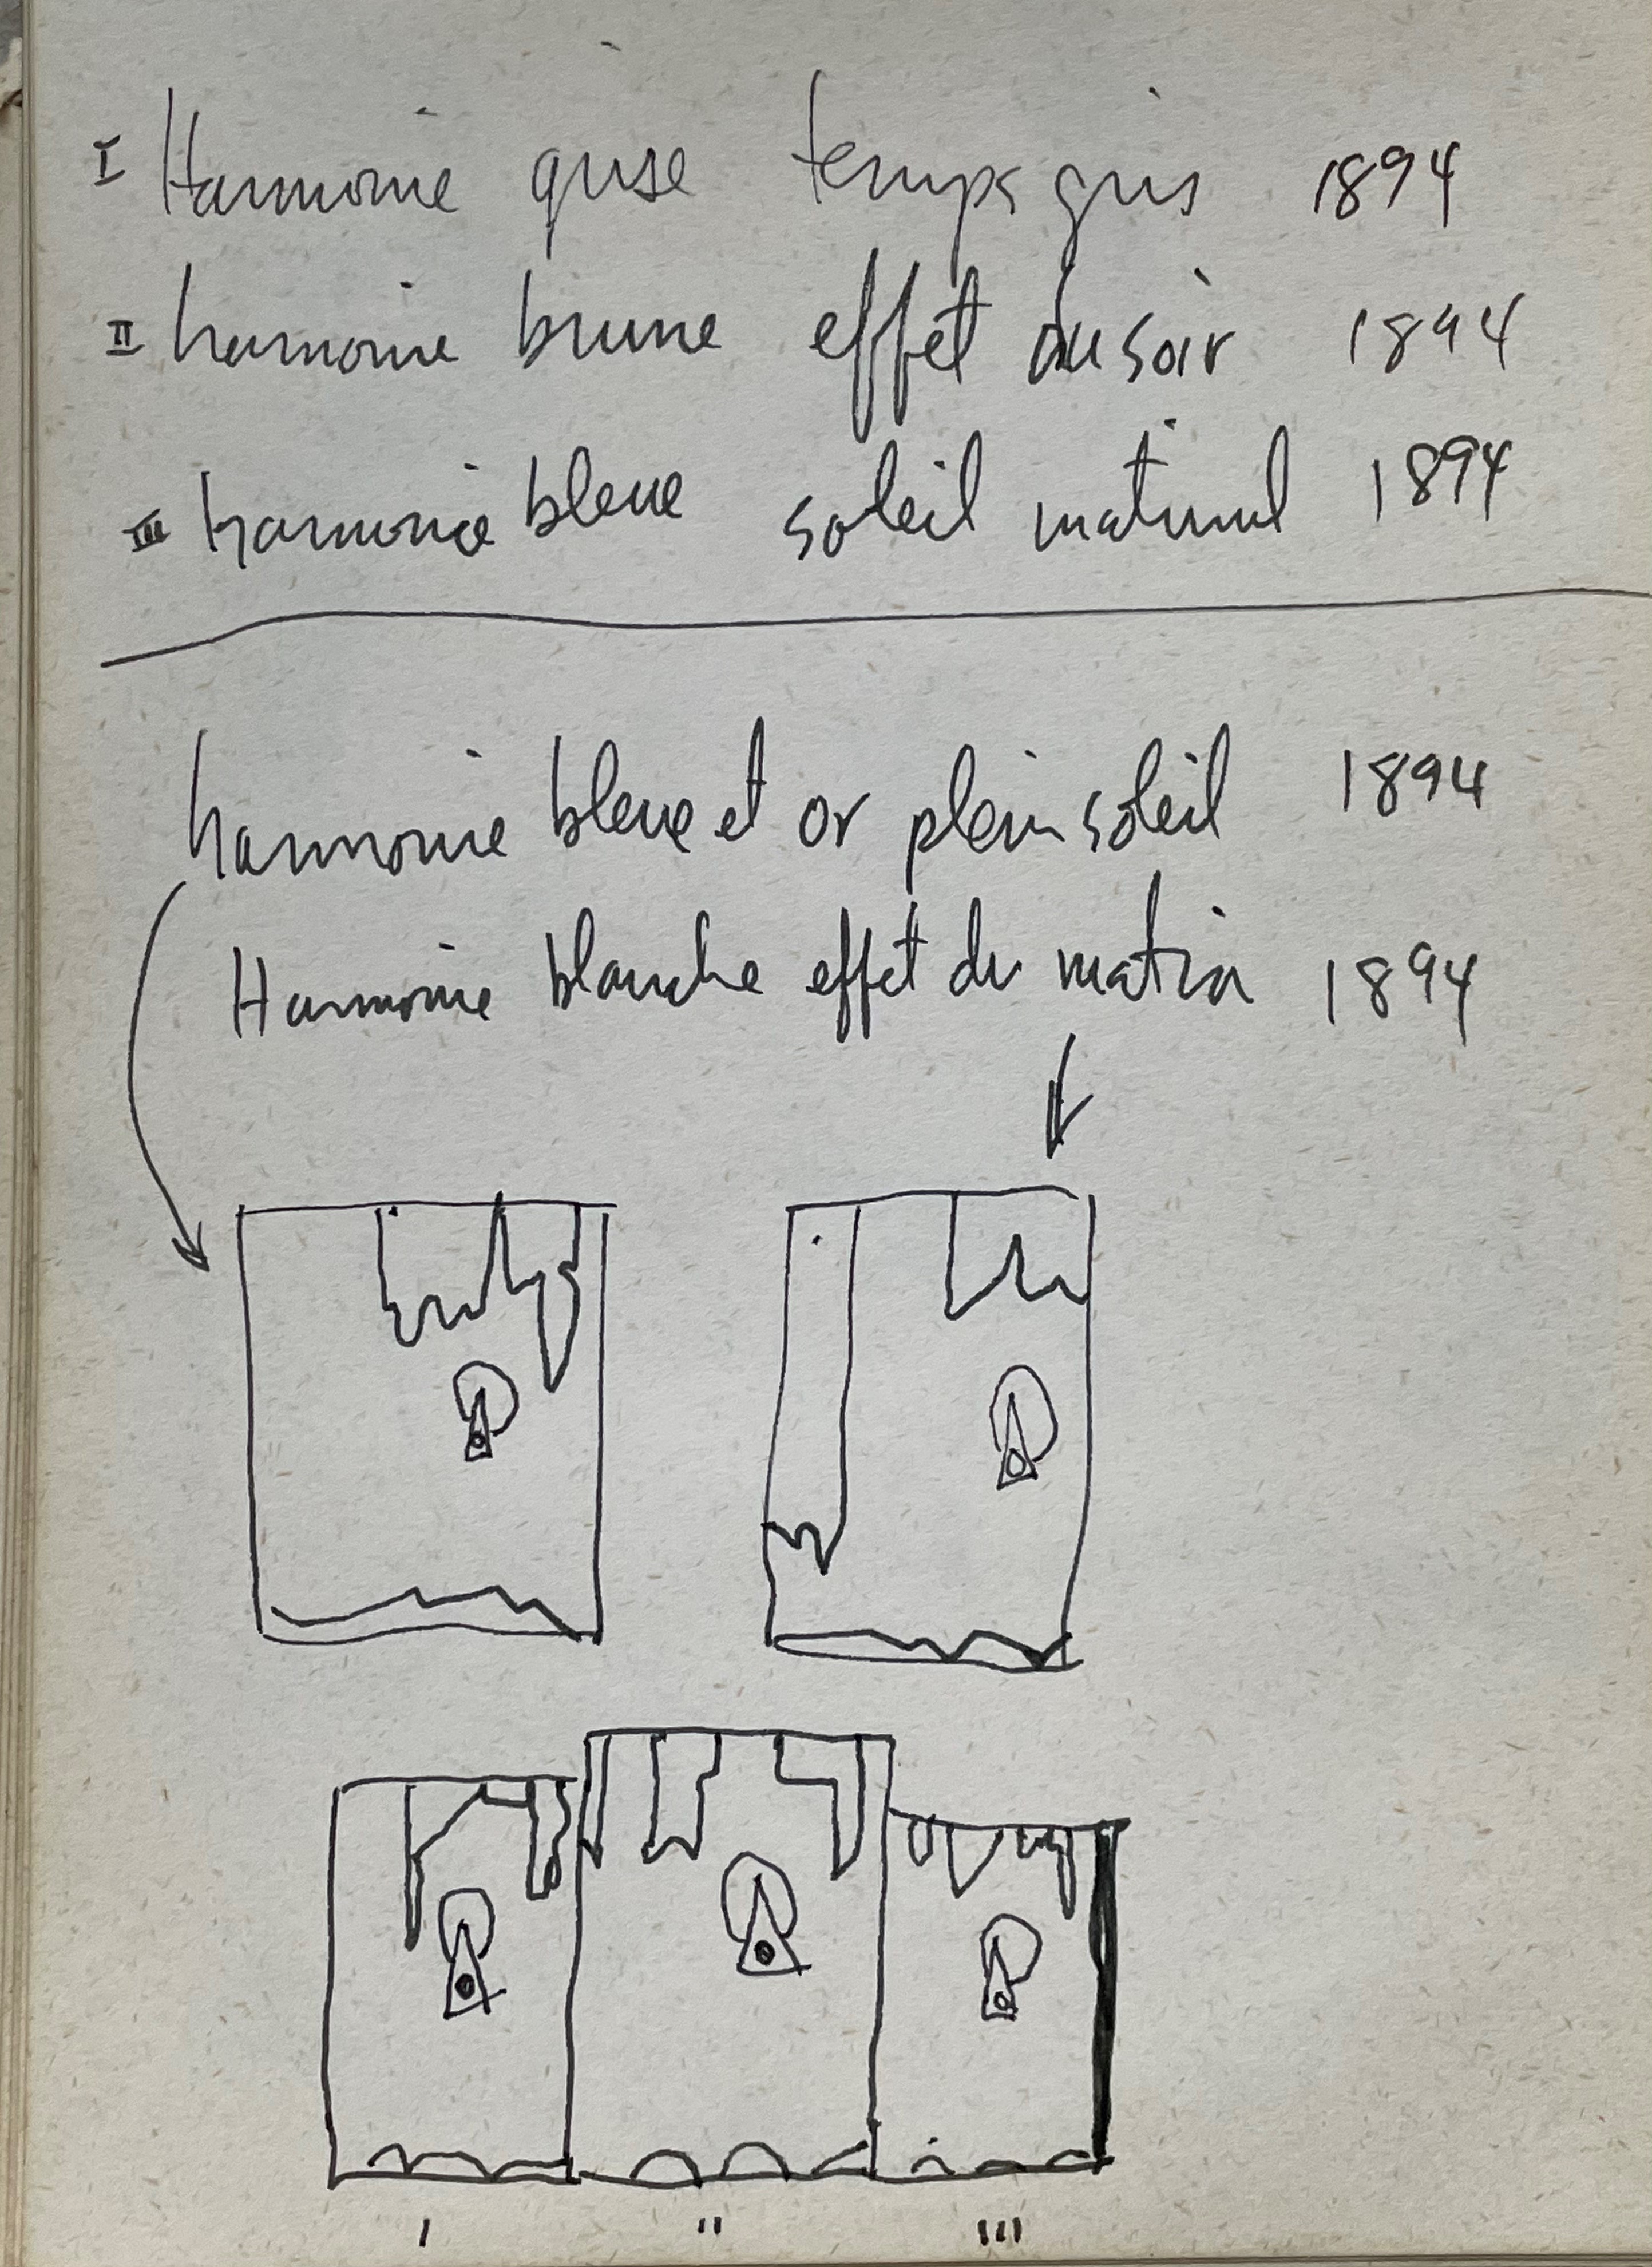 I Harmonie grise temps gris 1894
II harmonie brune effet du soir 1894
III harmonie bleue soleil matinal 1894
harmonie bleue et or plein soleil 1894
Harmonie blanche effet du matin 1894
I II III